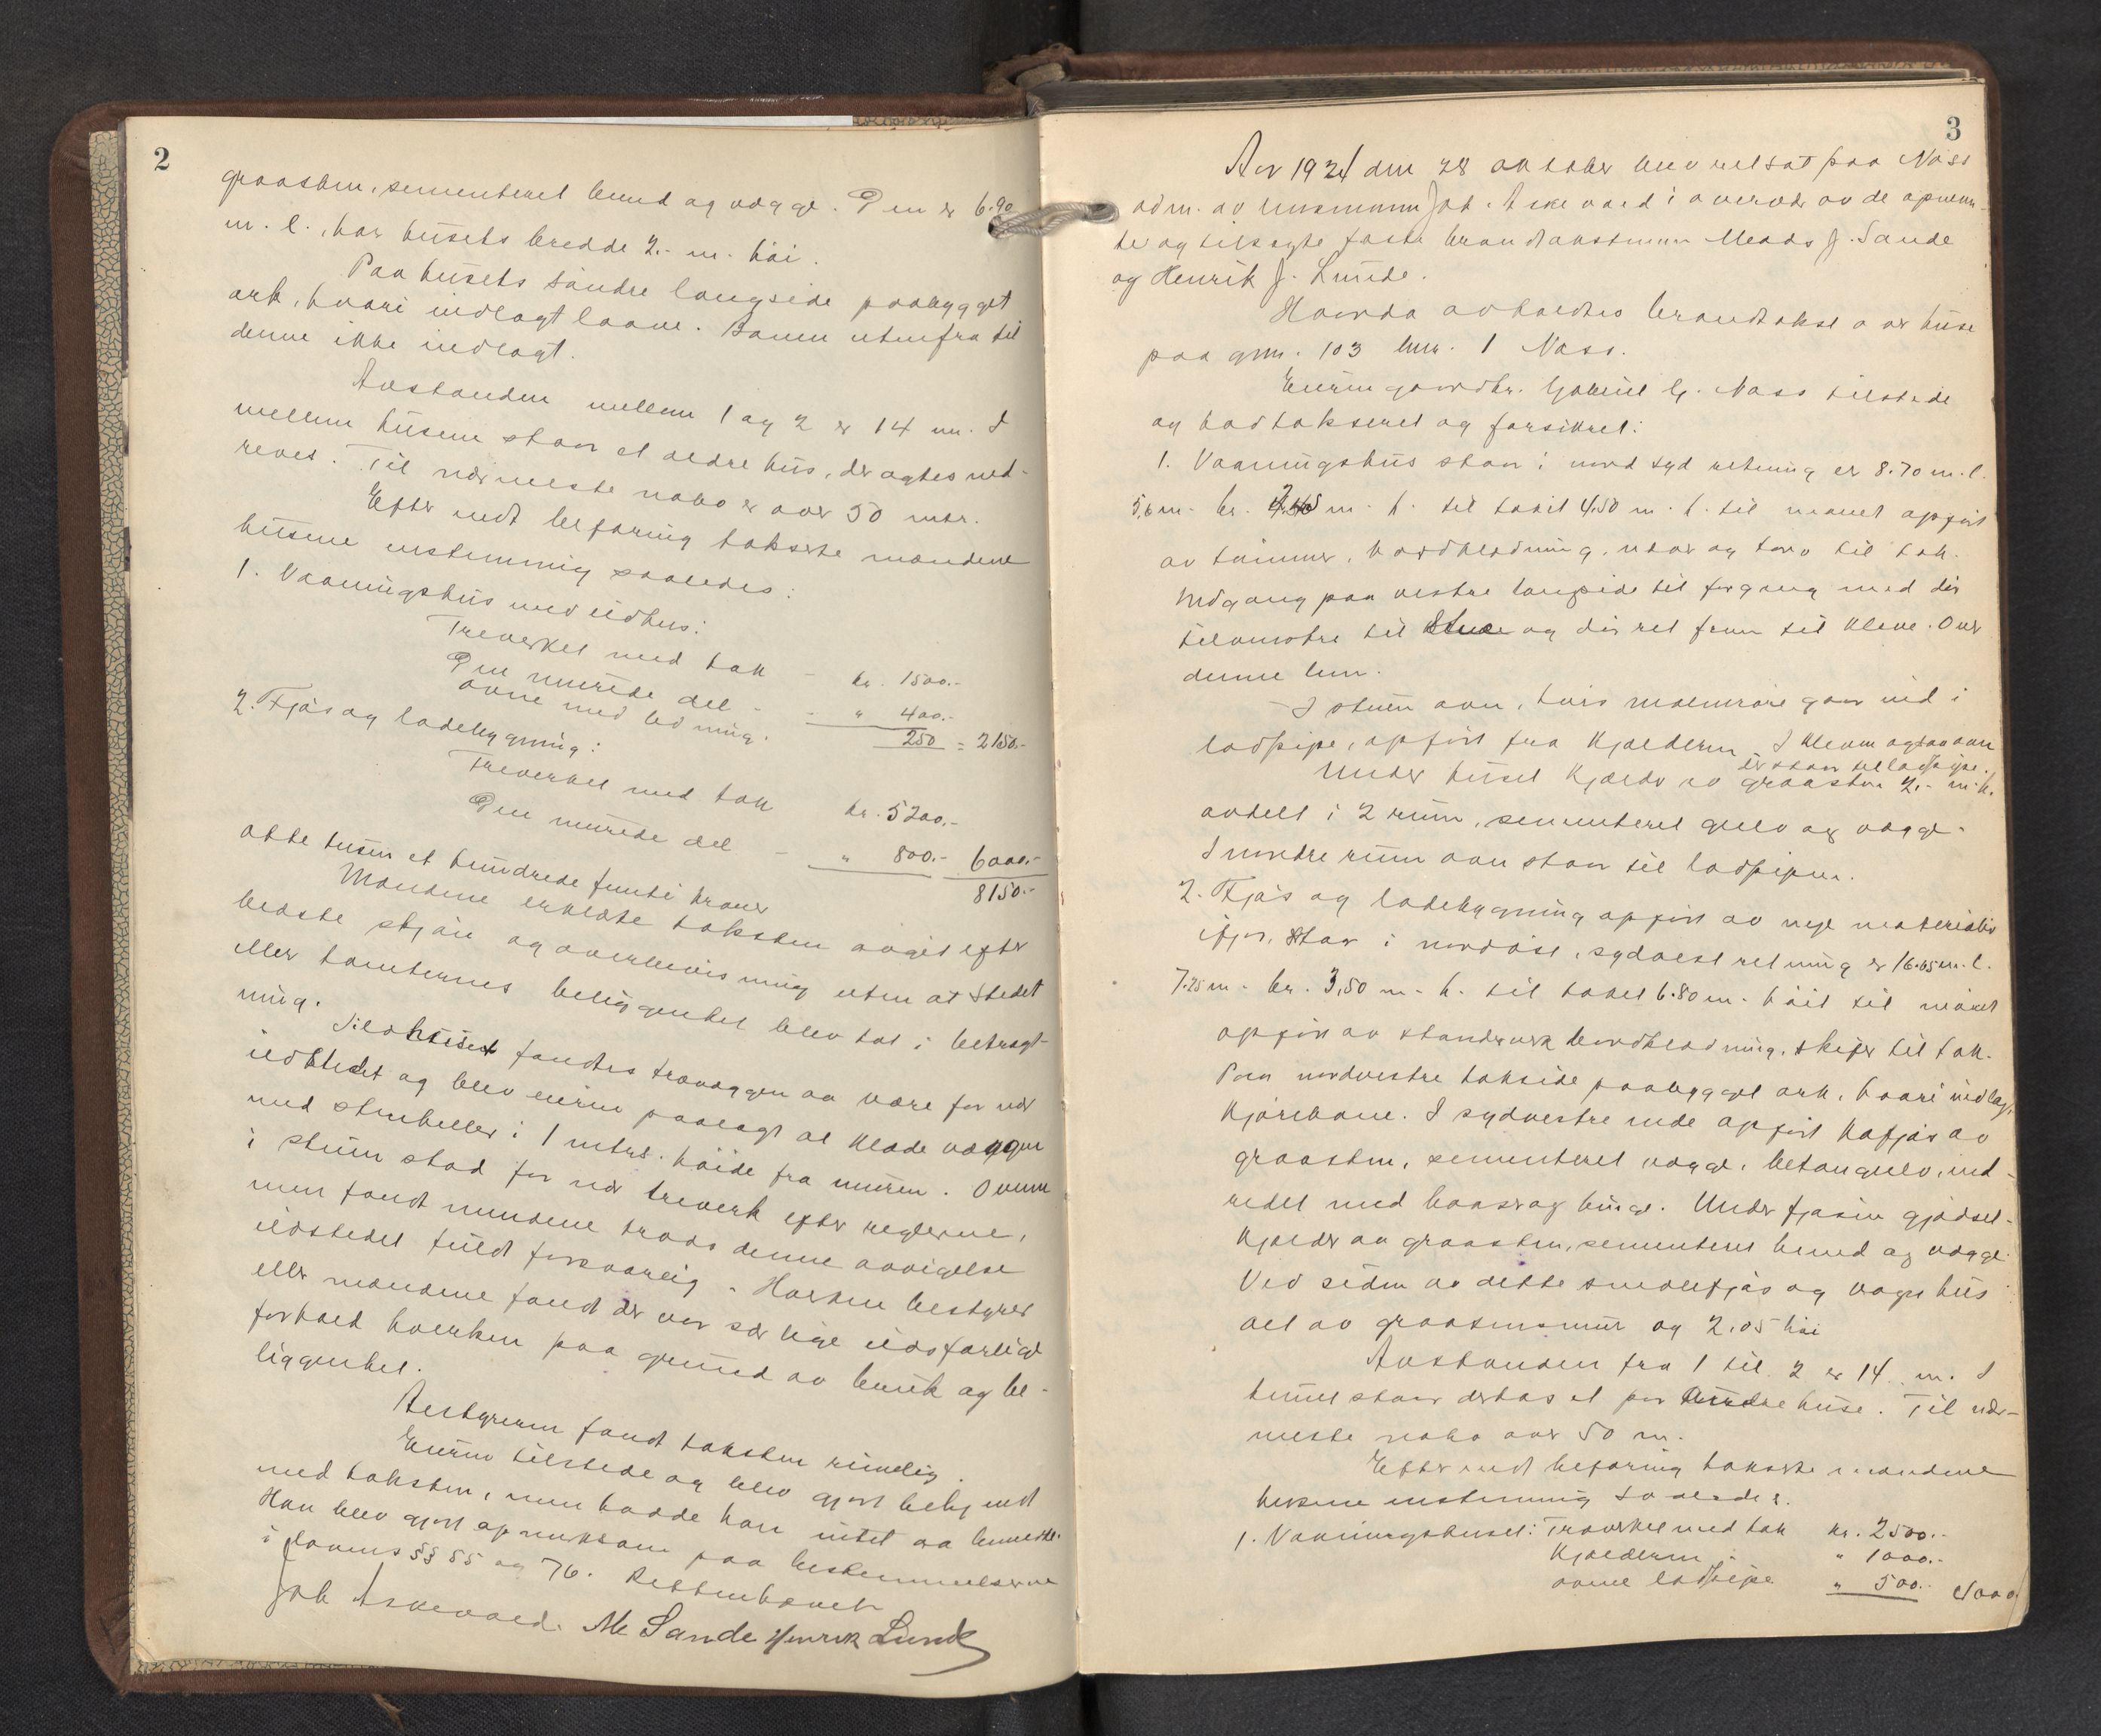 2
graasten, sementeret bund og vægge. Den er 6.90
m. l., har husets bredde 2.- m. høi.
Paa husets søndre langside paabygget
ark, hvori indlagt laave. Banen utenfra til
denne ikke indlagt.
Avstanden mellem 1 og 2 er 14 m. I
mellem husene staar et ældre hus, der agtes ned-
revet. Til nærmeste nabo er over 50 mtr.
Efter endt befaring takserte mændene
husene enstemmig saaledes:
1. Vaaningshus med ildhus:
Treverket med tak - kr. 1500.-
Den murede del - - " 400.-
ovne med ledning. 250 = 2150.-
2. Fjøs og ladebygning:
Treverket med tak kr. 5200.-
Den murede del - " 800.- 6000.-
otte tusen et hundrede femti kroner 8150.-
Mændene erklærte taksten avgit efter
bedste skjøn og overbevisning uten at stedet
eller tomternes beliggenhet blev tat i betragt-
ning.
I ildhuset fandtes trævæggen aa være for nær
ildstedet og blev eieren paalagt at klæde væggen
med stenheller i 1 mtrs. høide fra muren. Ovnen
i stuen stod for nær treverk efter reglerne,
men fandt mændene trods denne avvigelse
ildstedet fuldt forsvarlig. Hverken bestyrer
eller mændene fandt der var særlige ildsfarlige
forhold hverken paa grund av bruk og be-
liggenhet.
Bestyreren fandt taksten rimelig.
Eieren tilstede og blev gjort bekjendt
med taksten, men hadde han intet aa bemerke.
Han blev gjort opmerksom paa bestemmelserne
i lovens §§ 55 og 76. Rettenhævet
Joh Askevold. M Sande Henrik Lunde
3
Aar 1924 den 28 oktober blev rett sat paa Næss
adm. av lensmann Joh. Askevold i overvær av de opnevn-
te og tilsagte faste brandtakstmenn Mads J. Sande
og Henrik J. Lunde.
Hvorda avholdtes brandtakst over huse
paa gnr. 103 bnr. 1 Næss.
Eieren gaardbr. Gabriel G. Næss tilstede
og bad takseret og forsikret:
1. Vaaningshus staar i nord syd retning er 8.70 m. l.
5,6 m. br. m. h. til taket 4.50 m. h. til mønet opført
av tømmer, bordklædning, næver og torv til tak.
Indgang paa vestre langside til forgang med dør
tilvenstre til Stue og dør ret frem til kleve. Over
denne lem.
I stuen ovn, hvis malmrøre gaar ind i
ladpipe, opført fra kjælderen. I kleven ogsaa ovn
er staar til ladpipe.
Under huset kjælder av graasten 2.- m. h.
avdelt i 2 rum, sementeret gulv og vægge.
I nordre rum ovn staar til ladpipen.
2. Fjøs og ladebygning opført av nye materialier
ifjor, staar i nordost, sydvest retning er 16.65 m. l.
7.25 m. br. 3,50 m. h. til taket 6.80 m. høit til mønet
opført av standverk bordklædning, skifer til tak.
Paa nordvestre takside paabygget ark, hvori indlagt
kjørebane. I sydvestre ende opført kufjøs av
graasten, sementeret vægge, betongulv, ind-
redet med baaser og binge. Under fjøsen gjødsel-
kjælder av graasten, sementeret bund og vægge.
Ved siden av dette smalefjøs og vognhus
alt av graastensmur og 2,05 høi
Avstanden fra 1 til 2 er 14 m. I
tunet staar dertos et par andre huse. Til nær-
meste nabo over 50 m.
Efter endt befaring takserte mændene
husene enstemmig saaledes.
1. Vaaningshuset: Træverket med tak kr. 2500.-
Kjælderen - " 1000.-
ovne ladpipe " 500.- 4000